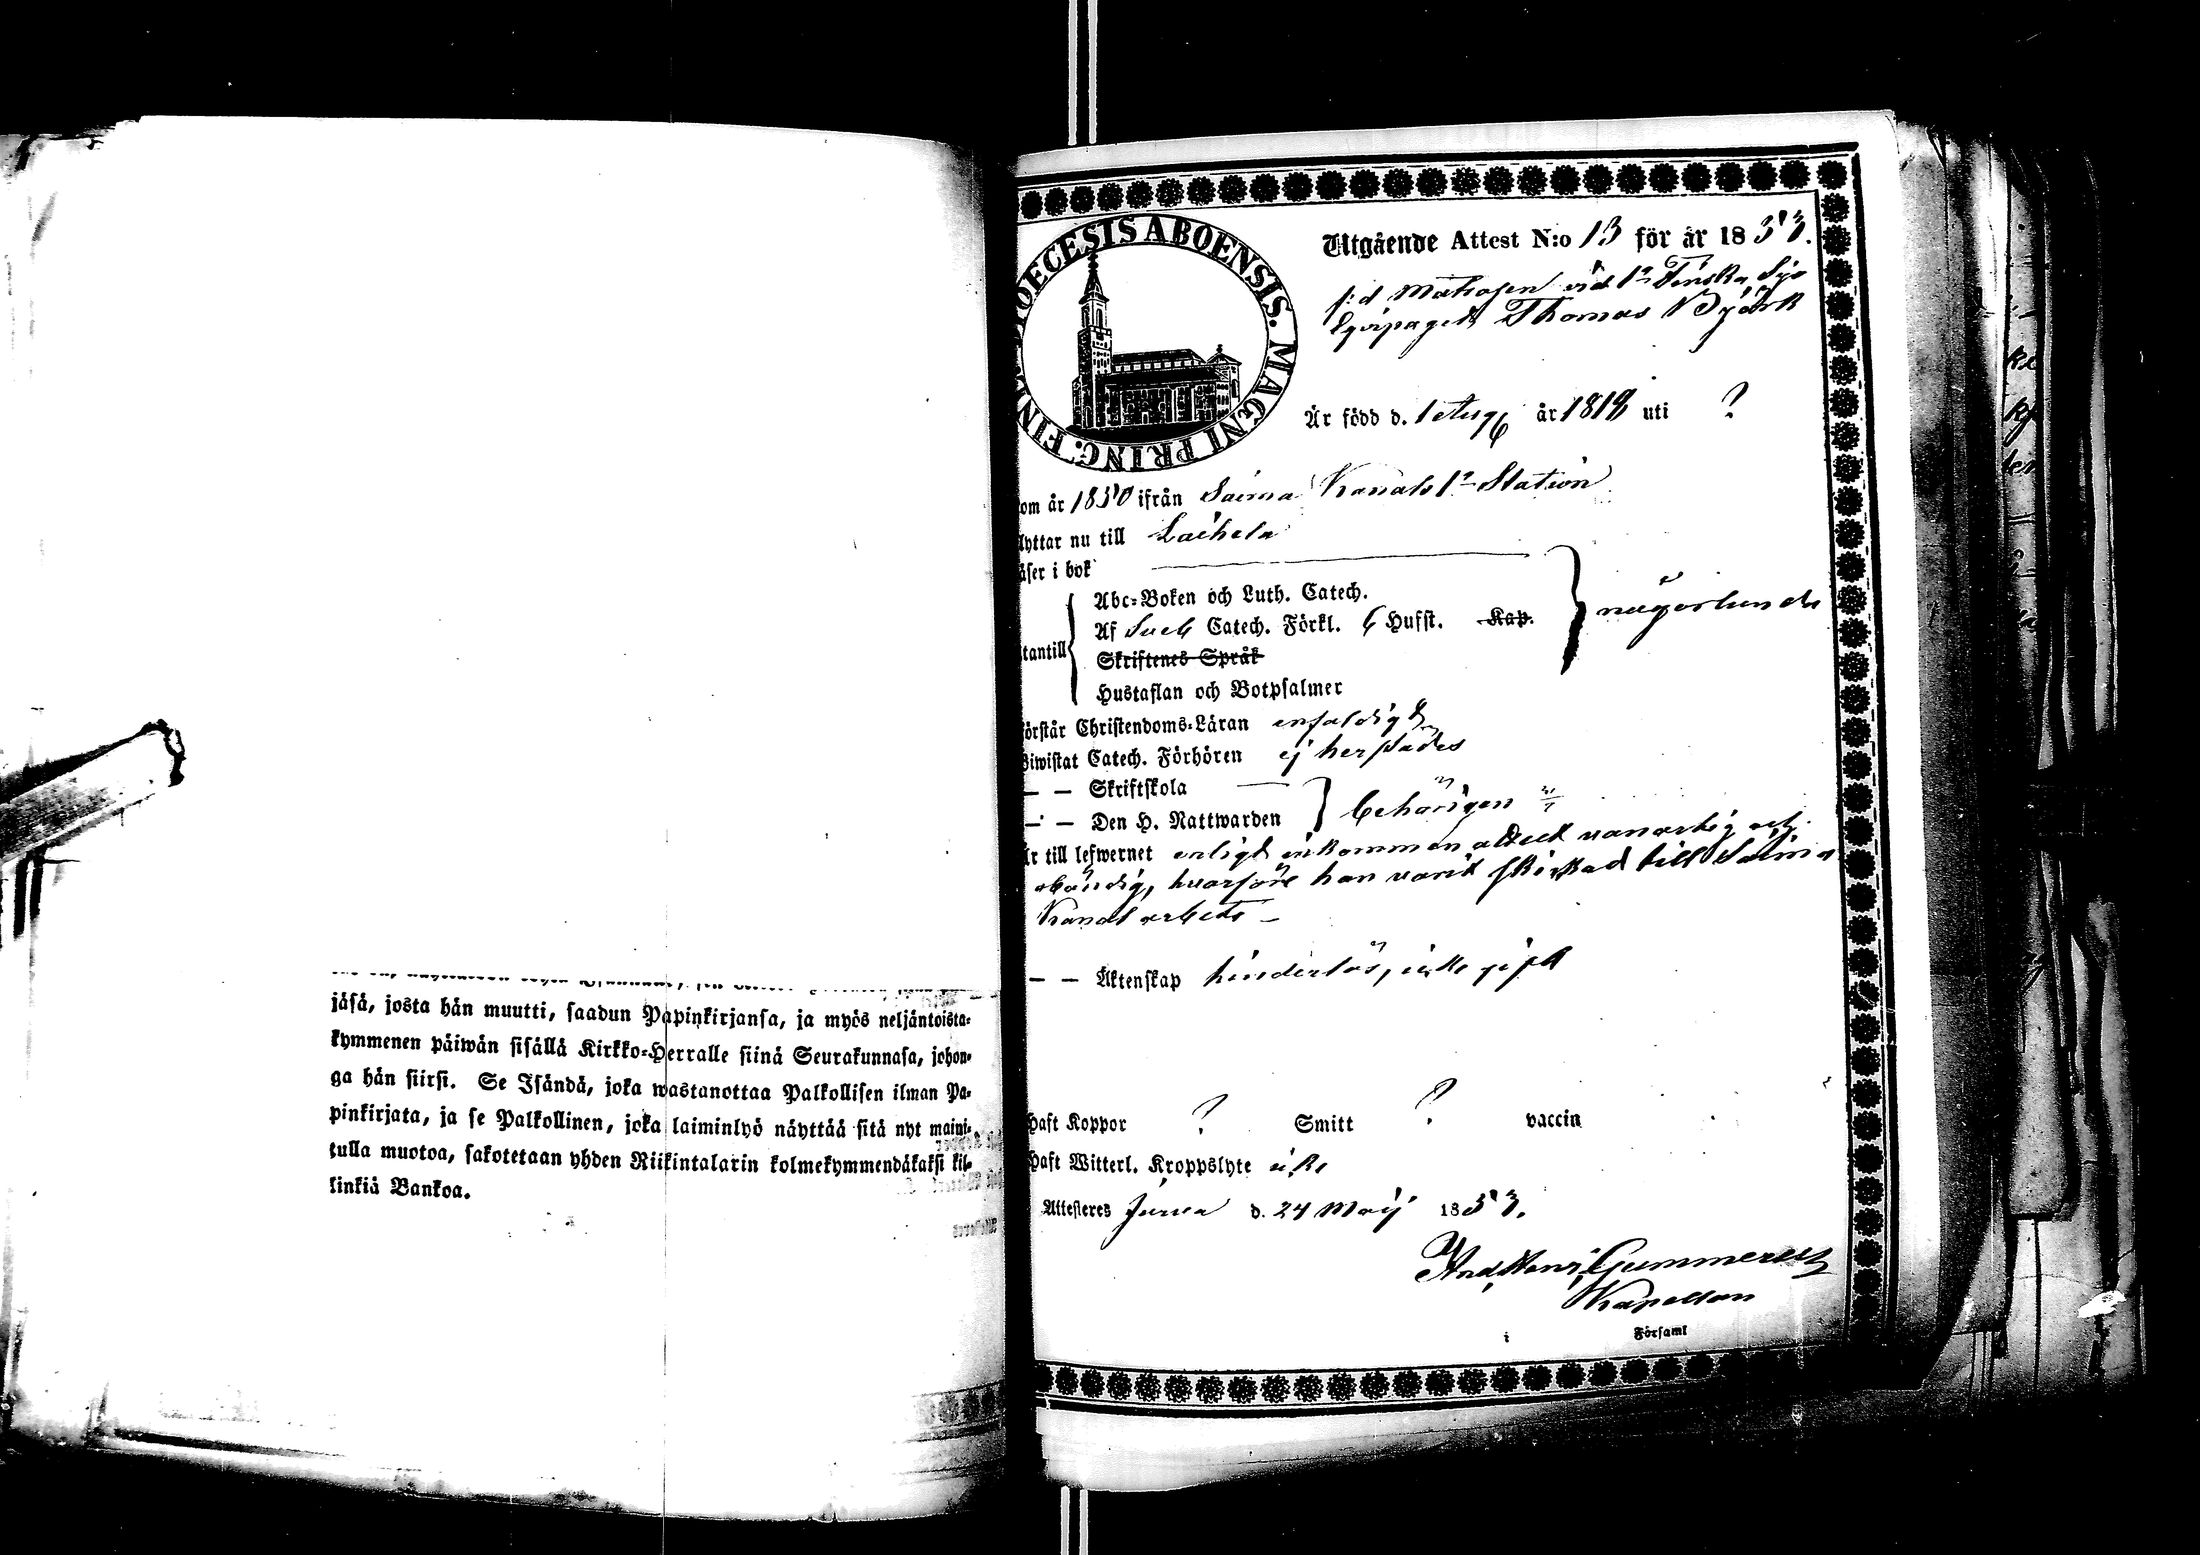 jäsä, josta hän muutti, saadun Papinkirjansa, ja myös neljäntoista-
kymmenen päiwän sisällä Kirkko-Herralle siinä Seurakunnasa, johon-
ga hän siirsi. Se Isändä, joka wastanottaa Palkollisen ilman Pa-
pinkirjata, ja se Palkollinen, joka laiminlyö näyttää sitä nyt maini-
tulla muotoa, sakotetaan yhden Riikintalarin kolmekymmendäkaksi kil-
linkiä Bankoa.
DIOECESIS ABOENSIS. MAGNI PRINC. FINL
Utgående Attest N:o 13 för år 1853.
f:d Matrosen vid 1a Finska Sjö
Eqvipaget Thomas Björk
Är född d. 1 Aug år 1818 uti ?
om år 1850 ifrån Saima Kanals 1a Station
lyttar nu till Laihela
äser i bok
Abc-Boken och Luth. Catech.
Af Sveb Catech. Förkl. 6 Hufst. Kap.
någorlunda
tantill
Skriftenes Språk
Hustaflan och Botpsalmer
örstår Christendoms-Läran enfaldigt
iwistat Catech. Förhören ej härstädes
— — Skriftskola
— — Den H. Nattwarden behörigen
r till lefwernet enligt inkommen attest vanartig och
obändig, hvarföre han varit skickad till Saima
Kanal arbete —
— — Äktenskap hinderlös, icke gift
Haft Koppor ? Smitt ? vaccin
Haft Witterl. Kroppslyte icke
Attesteres Jurva d. 24 Maij 1853.
And. Henr. Gummerus
Kapellan
i Församl